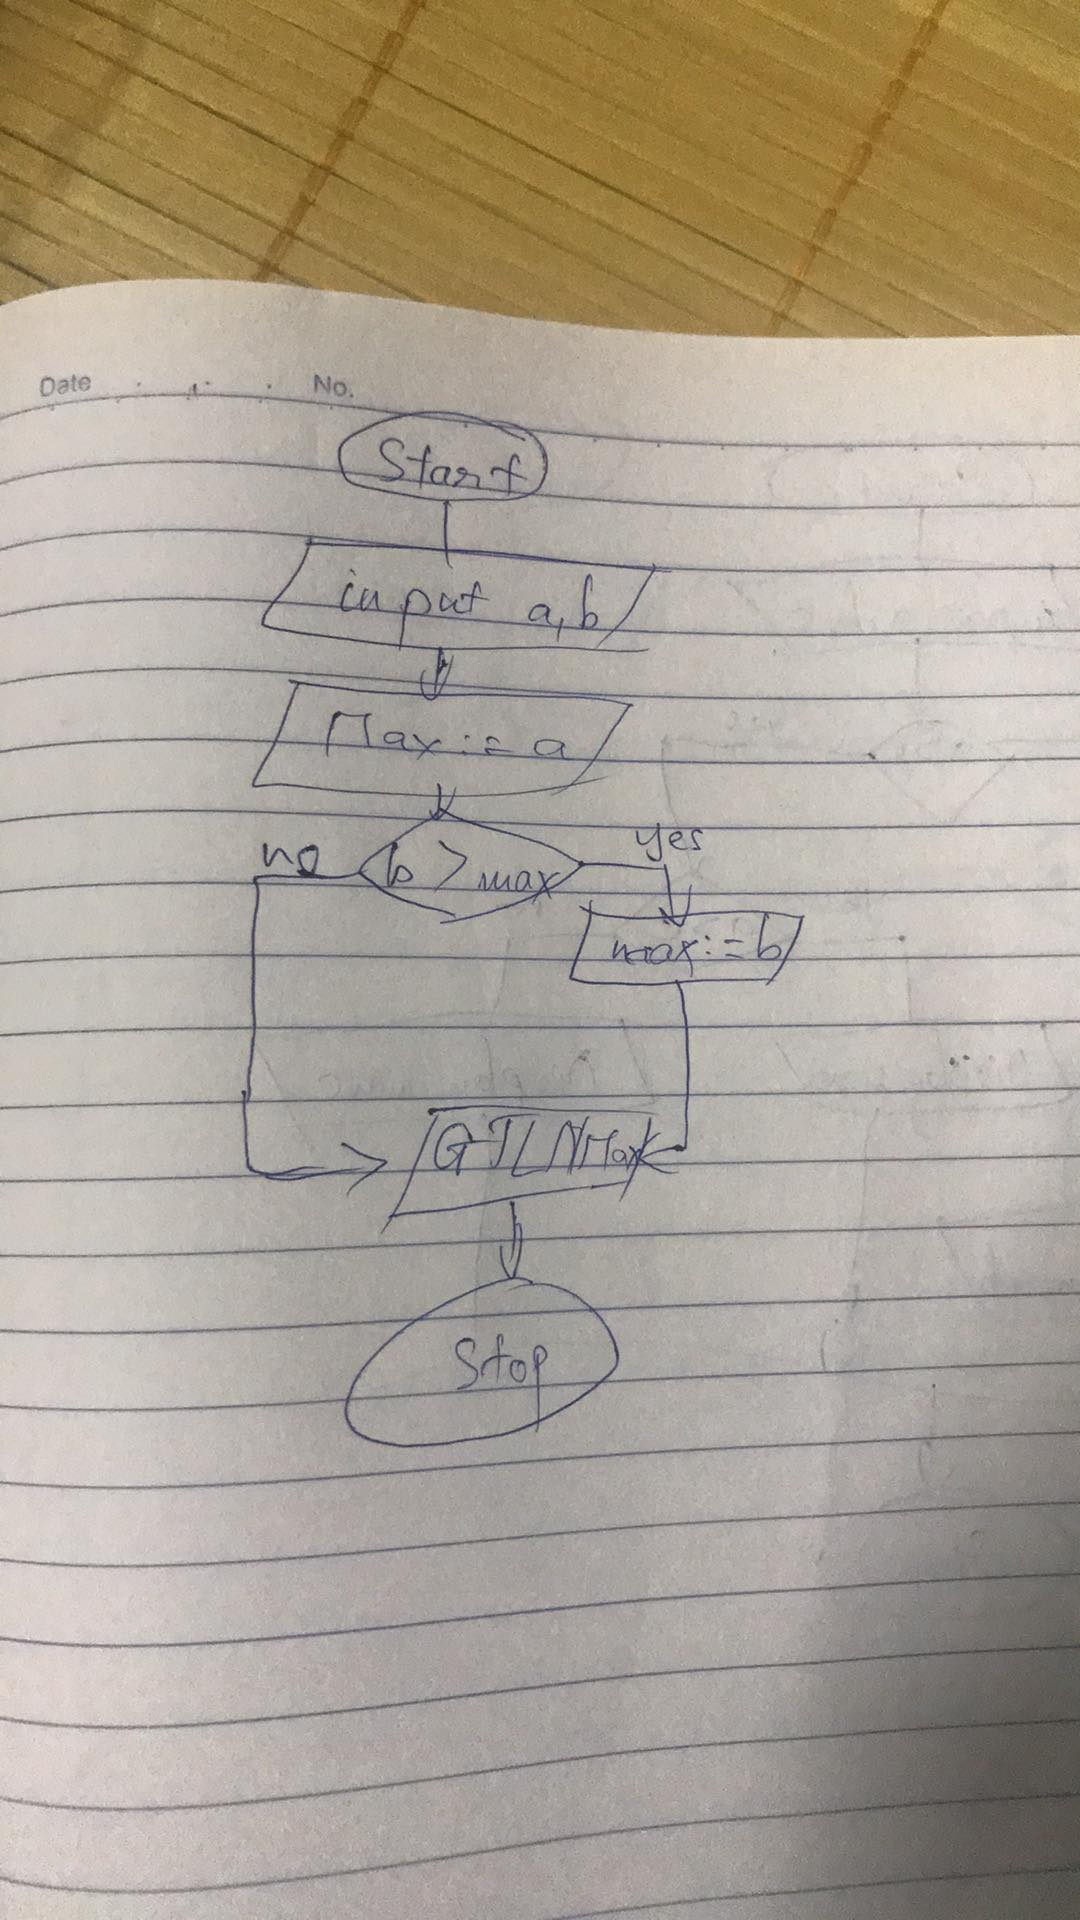 Date No.
Start
input a,b
Max := a
no b > max yes
max := b
GTLN Max
Stop